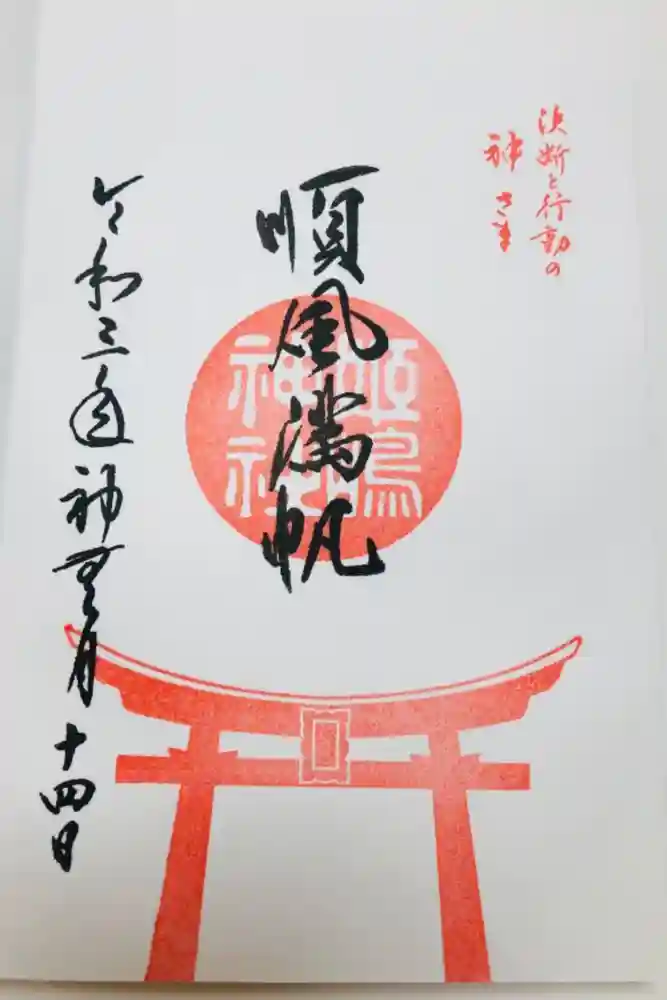 決断と行動の
神さま
順風満帆
姫嶋
神社
令和三年神無月十四日